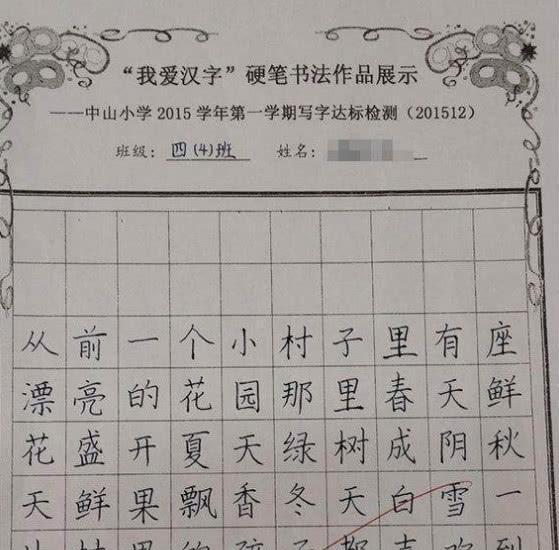 “我爱汉字”硬笔书法作品展示
——中山小学2015学年第一学期写字达标检测（201512）
班级：四(4)班 姓名：
从前一个小村子里有座
漂亮的花园那里春天鲜
花盛开夏天绿树成阴秋
天鲜果飘香冬天白雪一